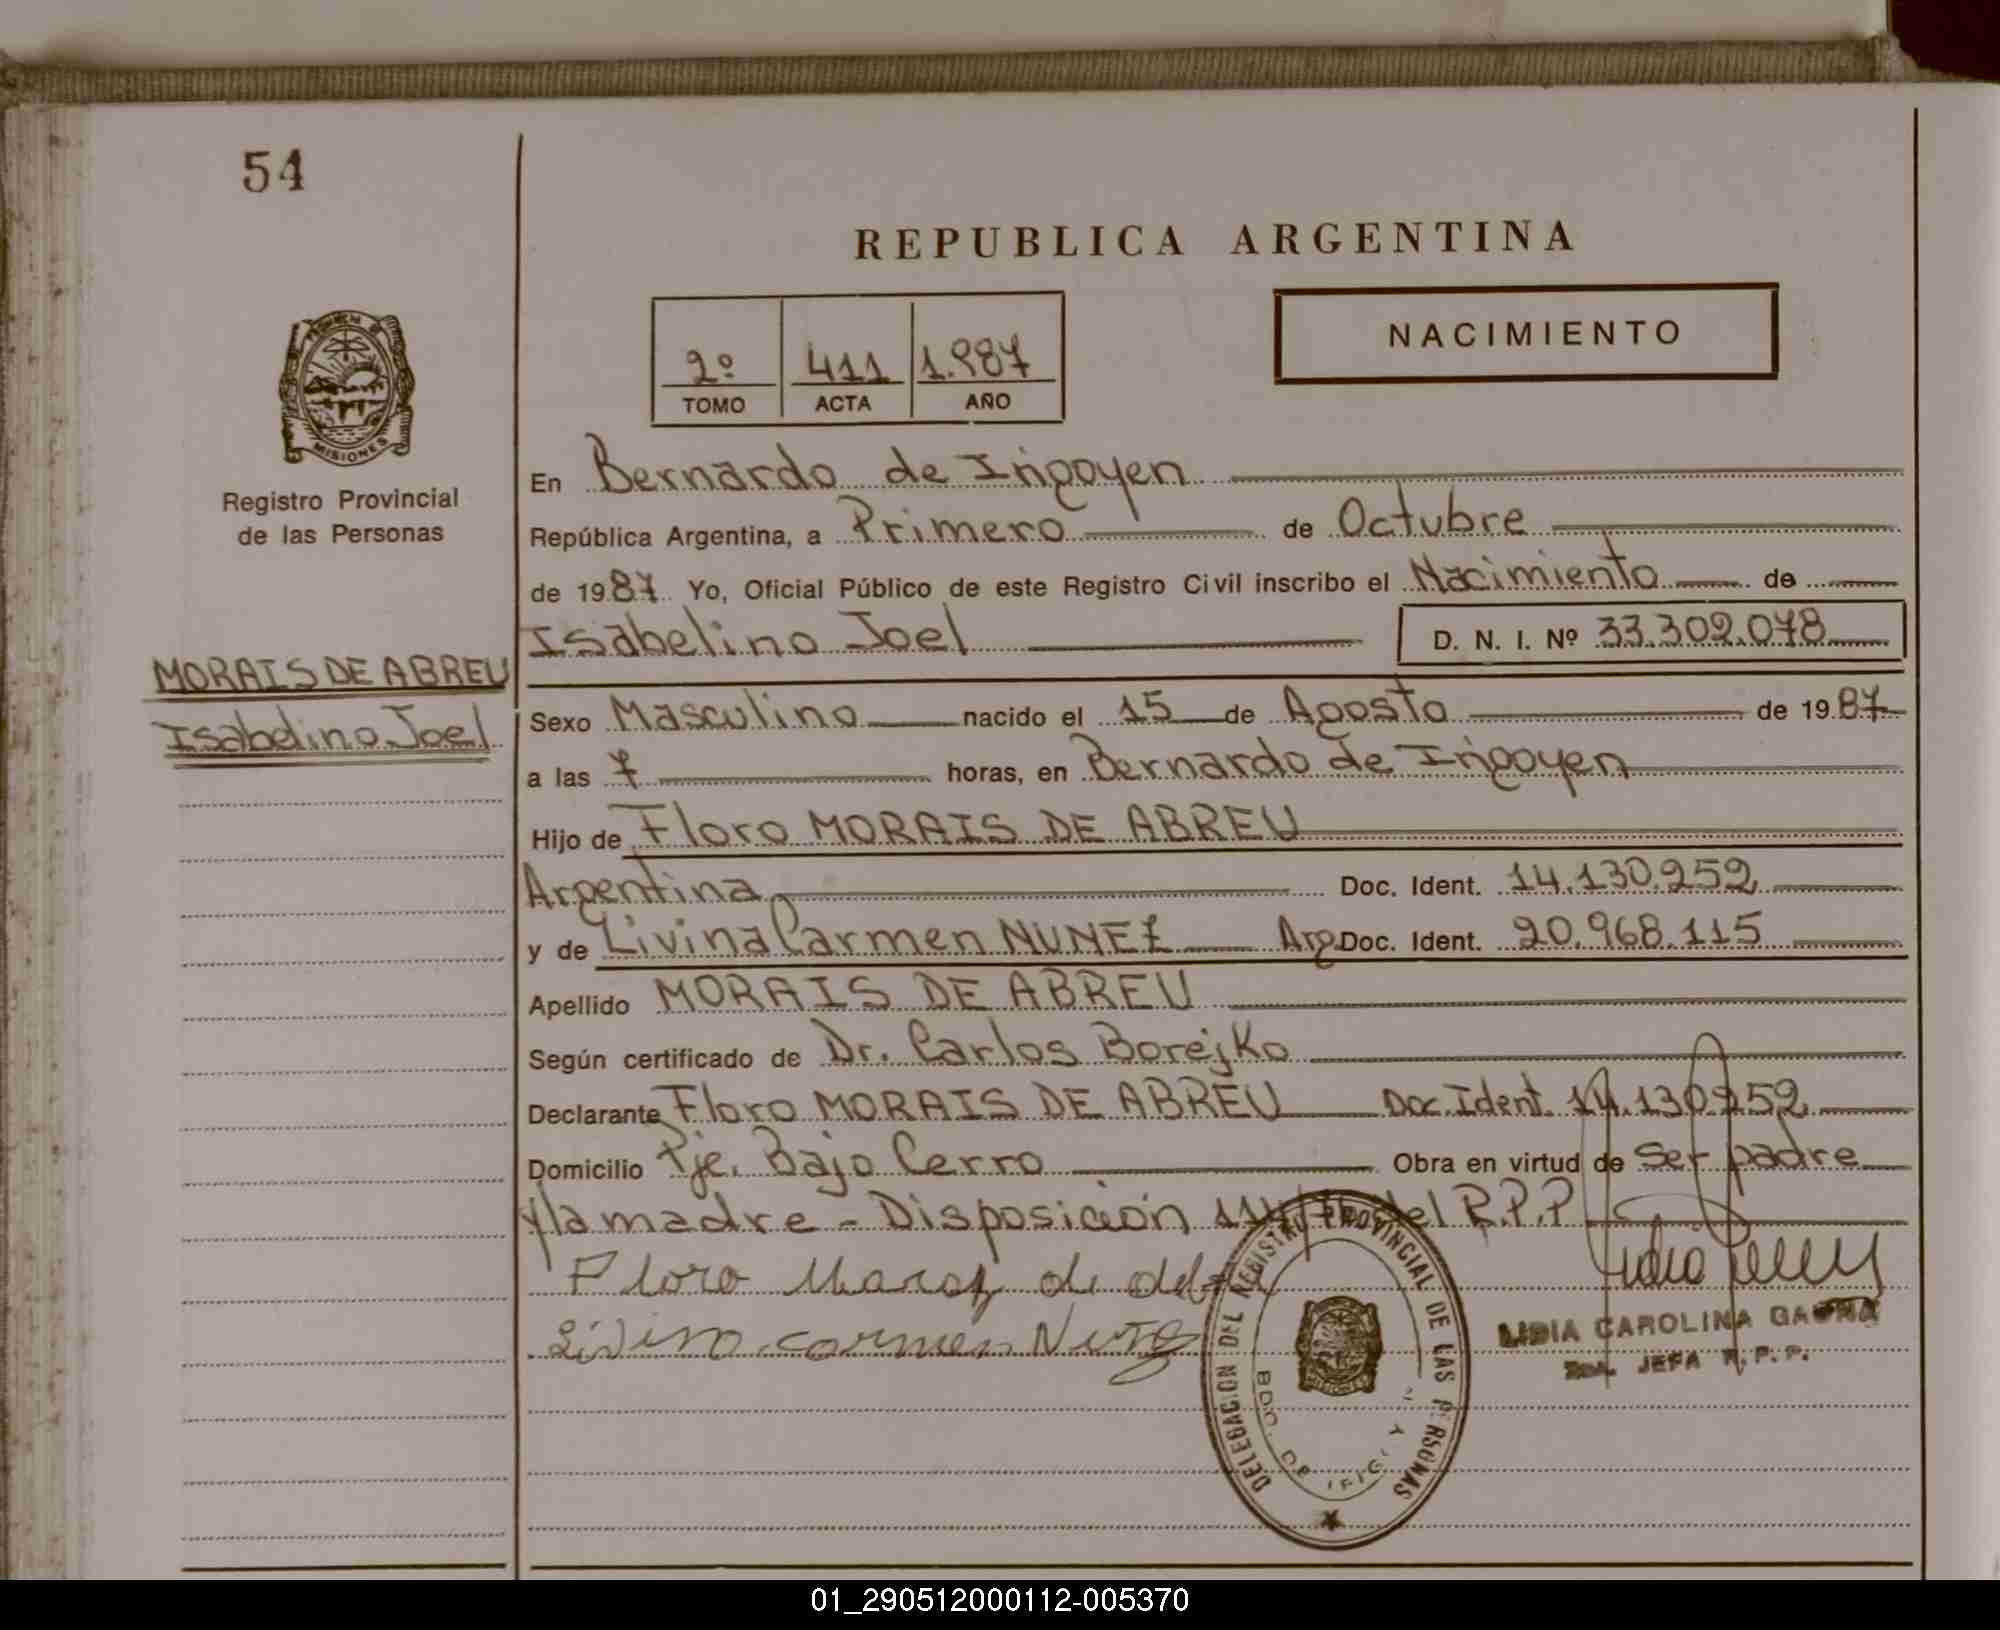 54
REPUBLICA ARGENTINA
2º 411 1.987
TOMO ACTA AÑO
NACIMIENTO
MISIONES
Registro Provincial
de las Personas
MORAIS DE ABREU
Isabelino Joel
En Bernardo de Irigoyen
República Argentina, a Primero de Octubre
de 1987 Yo, Oficial Público de este Registro Civil inscribo el Nacimiento de
Isabelino Joel D. N. I. Nº 33.302.078
Sexo Masculino nacido el 15 de Agosto de 1987
a las 7 horas, en Bernardo de Irigoyen
Hijo de Floro MORAIS DE ABREU
Argentina Doc. Ident. 14.130.252
y de Livina Carmen NUNEZ Arg. Doc. Ident. 20.968.115
Apellido MORAIS DE ABREU
Según certificado de Dr. Carlos Borejko
Declarante Floro MORAIS DE ABREU Doc. Ident. 14.130.252
Domicilio Pje. Bajo Cerro Obra en virtud de Ser padre
y la madre - Disposición del R.P.P
Floro de
Livina carmen
DELEGACION DEL REGISTRO PROVINCIAL DE LAS PERSONAS
BDO. DE
LIDIA CAROLINA
JEFA R.P.P.
01_290512000112-005370